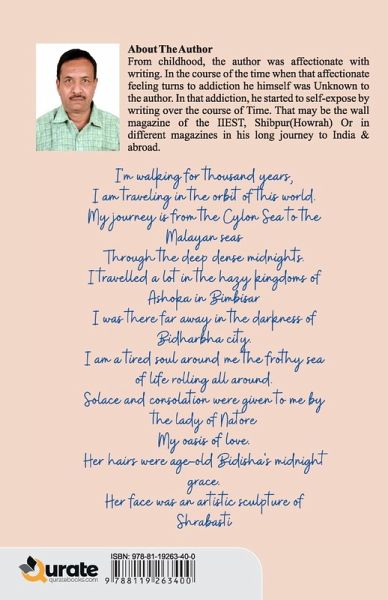 About The Author
From childhood, the author was affectionate with
writing. In the course of the time when that affectionate
feeling turns to addiction he himself was Unknown to
the author. In that addiction, he started to self-expose by
writing over the course of Time. That may be the wall
magazine of the IIEST, Shibpur(Howrah) Or in
different magazines in his long journey to India &
abroad.
I'm walking for thousand years,
I am traveling in the orbit of this world.
My journey is from the Cylon Sea to the
Malayan seas
Through the deep dense midnights.
I travelled a lot in the hazy kingdoms of
Ashoka in Bimbisar
I was there far away in the darkness of
Bidharbha city.
I am a tired soul around me the frothy sea
of life rolling all around.
Solace and consolation were given to me by
the lady of Natore
My oasis of love.
Her hairs were age-old Bidisha's midnight
grace.
Her face was an artistic sculpture of
Shrabasti
Qurate
quratebooks.com
ISBN: 978-81-19263-40-0
9 788119 263400